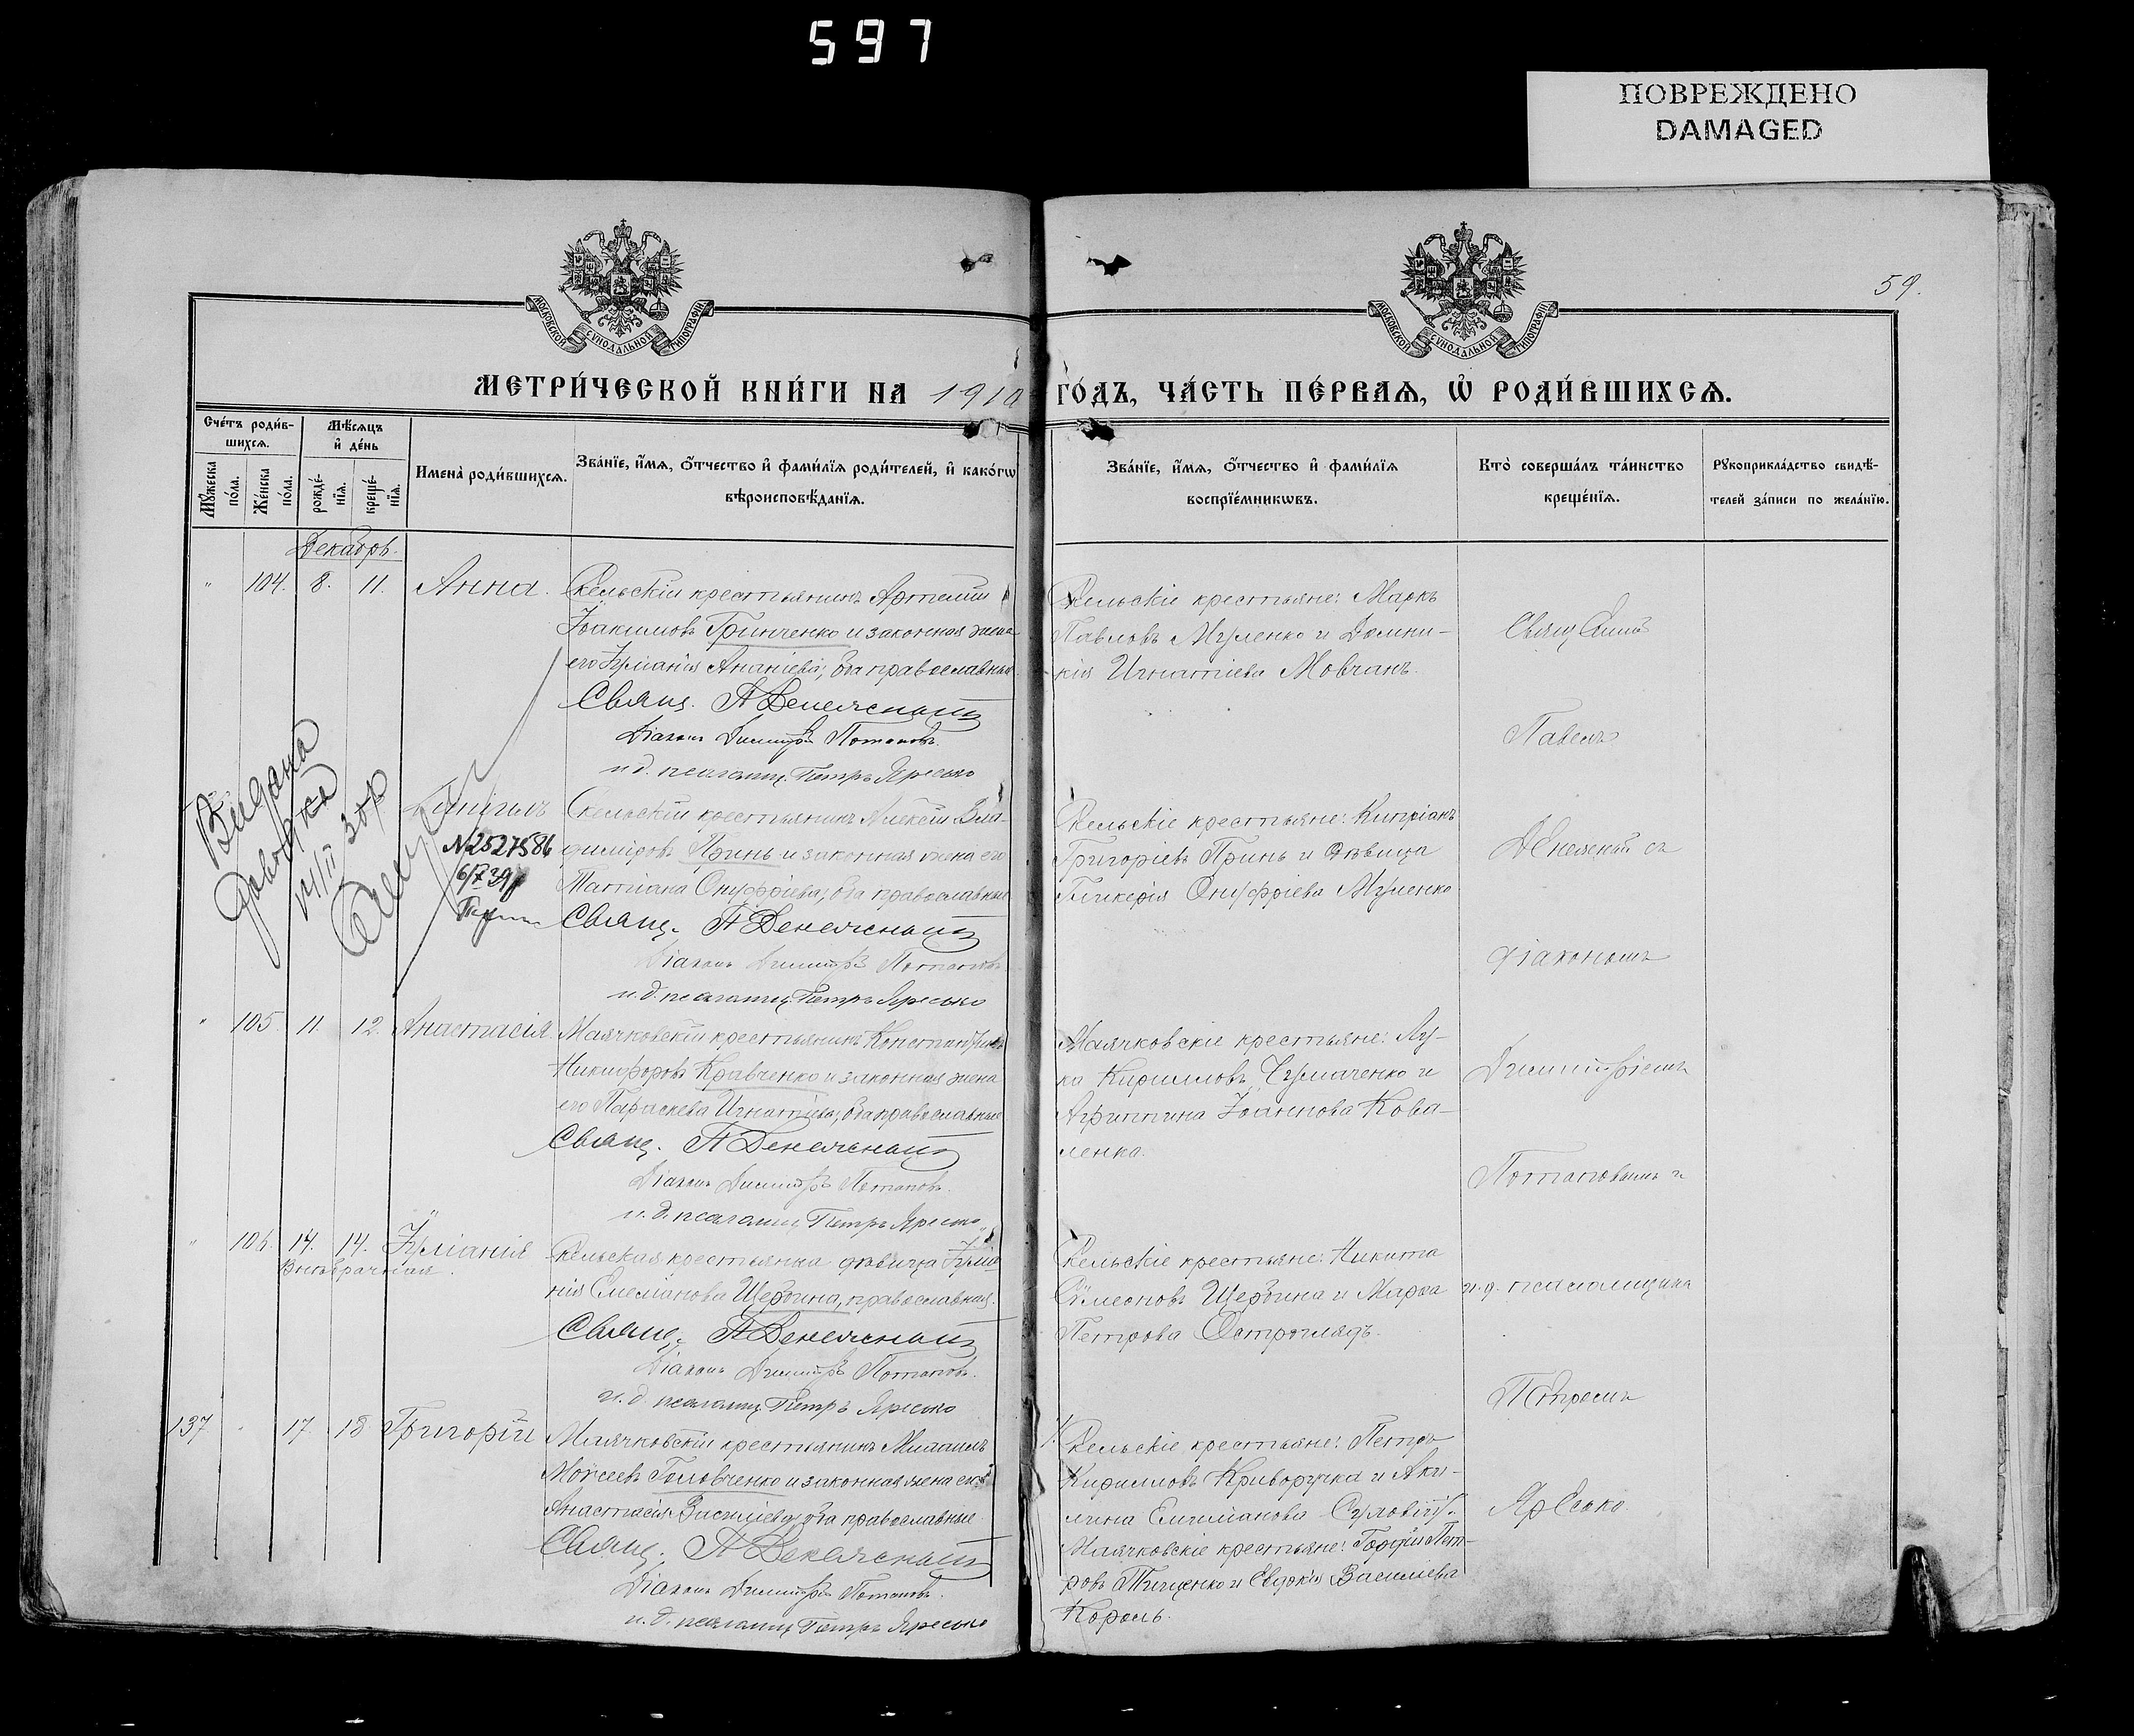 597
ПОВРЕЖДЕНО
DAMAGED
59.
МОСКОВСКОЙ СѴНОДАЛЬНОЙ ТИПОГРАФІИ
МОСКОВСКОЙ СѴНОДАЛЬНОЙ ТИПОГРАФІИ
МЕТРИ́ЧЕСКОЙ КНИ́ГИ НА 1910 ГО́ДЪ, ЧА́СТЬ ПЕ́РВАЯ, Ѡ҆ РОДИ́ВШИХСЯ.
Сче́тъ роди́в-
шихсѧ.
Мꙋ́жеска
по́ла.
Же́нска
по́ла.
Мѣ́сѧцъ
и҆ де́нь
рожде́-
нїѧ.
креще́-
нїѧ.
Имена̀ роди́вшихсѧ.
Зва́нїе, и҆́мѧ, ѻ҆́тчество и҆ фами́лїѧ роди́телей, и҆ како́гѡ
вѣроисповѣ́данїѧ.
Зва́нїе, и҆́мѧ, ѻ҆́тчество и҆ фами́лїѧ
воспрїе́мникѡвъ.
Кто̀ соверша́лъ та́инство
креще́нїѧ.
Рꙋкоприкла́дство свидѣ́-
телей за́писи по жела́нїю.
Декабрь.
" 104. 8. 11. Анна.
Скельскій крестьянинъ Артемій
Іоакимовъ Гринченко и законная жена
его Іуліанія Ананіева; оба православные
Свящ. П Денежный
Діаконъ Димитрій Потаповъ.
и.д. псаломщ. Петръ Яресько
Скельскіе крестьяне: Маркъ
Павловъ Мѵленко и Домни-
кія Игнатіева Мовчанъ.
Видана
довідка
14/II 30р
№2527586
6/X 39р
Скельскій крестьянинъ Алексій Вла-
диміровъ Принь и законная жена его
Татіана Онуфріева; оба православные
Свящ. П Денежный
Діаконъ Димитрій Потаповъ
и.д. псаломщ. Петръ Яресько
Скельскіе крестьяне: Кипріанъ
Григоріевъ Принь и дѣвица
Гликерія Онуфріева Мѵленко
" 105. 11. 12. Анастасія
Маячковскій крестьянинъ Константинъ
Никифоровъ Кравченко и законная жена
его Параскева Игнатіева; оба православные
Свящ. П Денежный
Діаконъ Димитрій Потаповъ.
и.д. псаломщ. Петръ Яресько
Маячковскіе крестьяне: Лу-
ка Кирилловъ Чумаченко и
Агриппина Іоаннова Кова-
ленко.
" 106. 14. 14. Іуліанія
Внѣбрачная.
Скельская крестьянка дѣвица Іуліа-
нія Симеонова Щербина, православная.
Свящ. П Денежный
Діаконъ Димитрій Потаповъ.
и.д. псаломщ. Петръ Яресько
Скельскіе крестьяне: Никита
Сѵмеоновъ Щербина и Марѳа
Петрова Остроглядъ.
137 " 17. 18 Григорій
Маячковскій крестьянинъ Михаилъ
Моѵсеевъ Головченко и законная жена его
Анастасія Василіева; оба православные
Свящ. П Денежный
Діаконъ Димитрій Потаповъ.
и.д. псаломщ. Петръ Яресько
Скельскіе крестьяне: Петръ
Кирилловъ Криворучка и Аки-
лина
Маячковскіе крестьяне: Пет-
ровъ Тищенко и Евдокія Василіева
Король.
Павелъ
Денежный съ
діакономъ
Димитріемъ
Потаповымъ и
и.д. псаломщика
Петромъ
Яресько